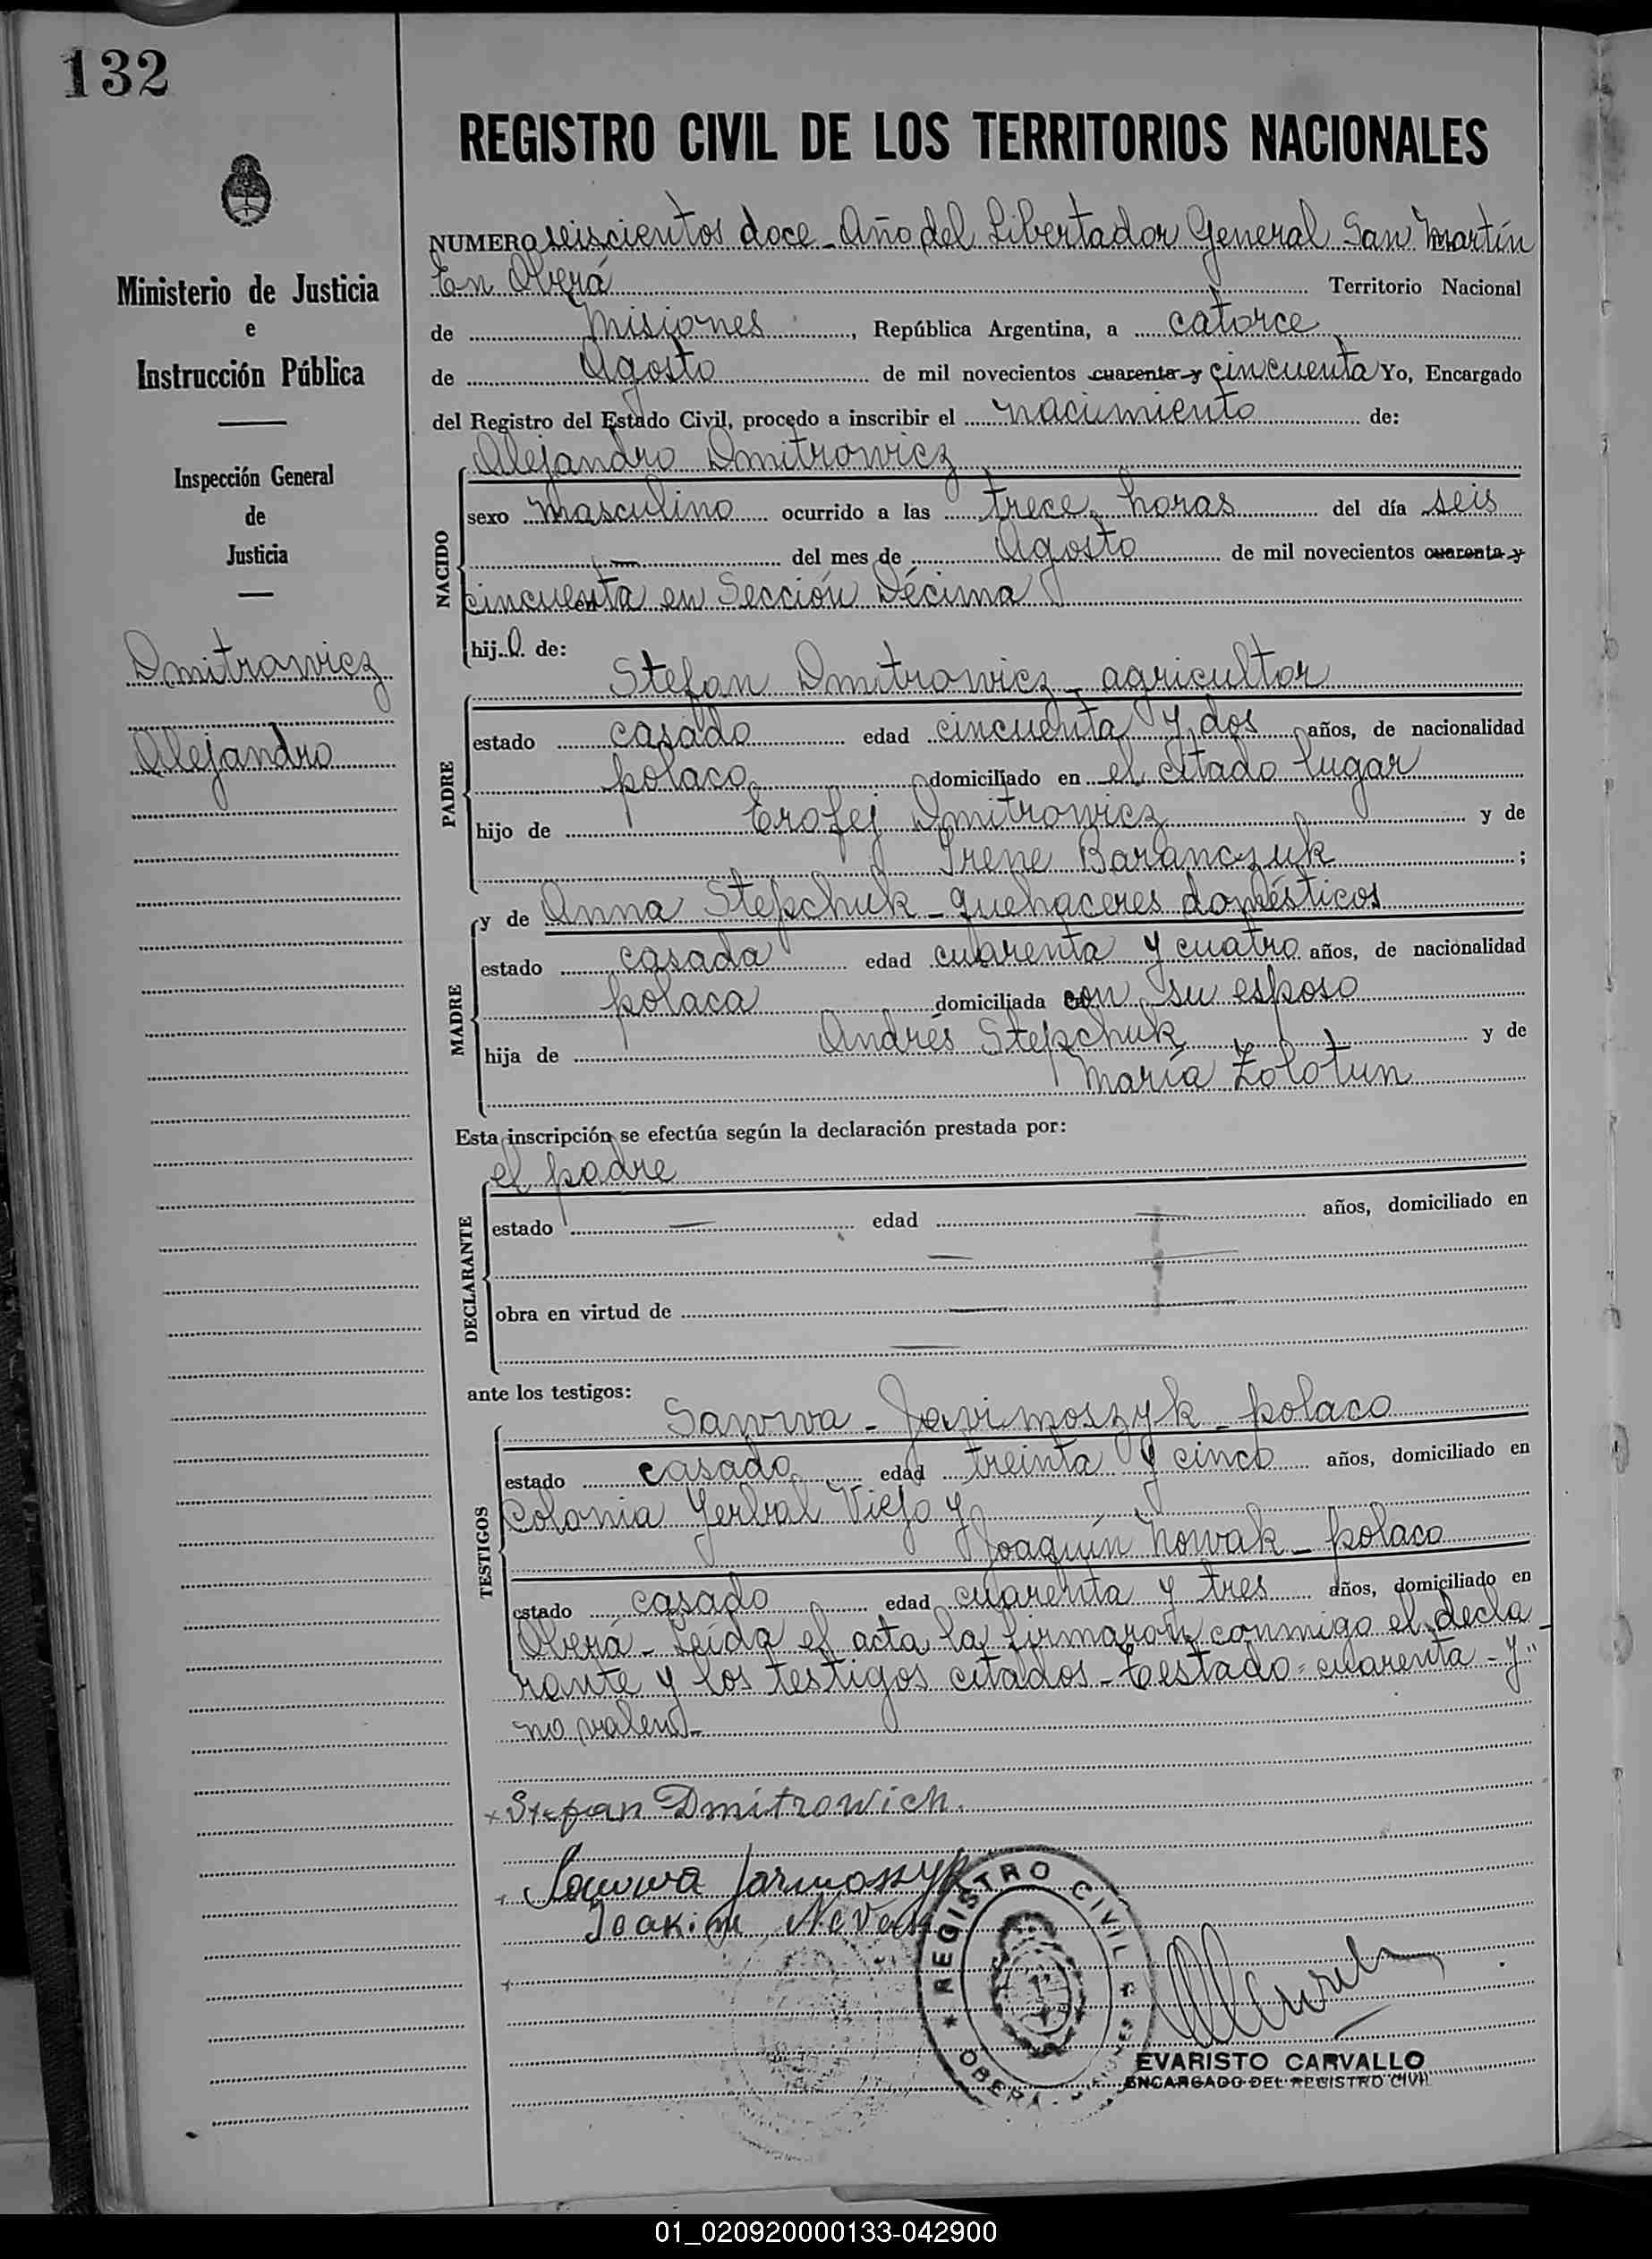 132
REGISTRO CIVIL DE LOS TERRITORIOS NACIONALES
Ministerio de Justicia
e
Instrucción Pública
Inspección General
de
Justicia
Dmitrowicz
Alejandro
NUMERO seiscientos doce - Año del Libertador General San Martín
En Oberá Territorio Nacional
de Misiones, República Argentina, a catorce
de Agosto de mil novecientos cuarenta y cincuenta Yo, Encargado
del Registro del Estado Civil, procedo a inscribir el nacimiento de:
Alejandro Dmitrowicz
NACIDO
sexo masculino ocurrido a las trece horas del día seis
— del mes de Agosto de mil novecientos cuarenta y
cincuenta en Sección Décima
hijo de:
PADRE
Stefan Dmitrowicz - agricultor
estado casado edad cincuenta y dos años, de nacionalidad
polaco domiciliado en el citado lugar
hijo de Erofej Dmitrowicz y de
Irene Baranczuk ;
MADRE
y de Anna Stepchuk - quehaceres domésticos
estado casada edad cuarenta y cuatro años, de nacionalidad
polaca domiciliada con su esposo
hija de Andrés Stepchuk y de
María Zolotun
Esta inscripción se efectúa según la declaración prestada por:
DECLARANTE
el padre
estado — edad — años, domiciliado en
—
obra en virtud de —
—
ante los testigos:
TESTIGOS
Sawwa - polaco
estado casado edad treinta y cinco años, domiciliado en
Colonia Yerbal Viejo y
Joaquín Nowak - polaco
estado casado edad cuarenta y tres años, domiciliado en
Oberá - Leída el acta la firmaron conmigo el decla
rante y los testigos citados - Testado: cuarenta - y"
no valen -
Stefan Dmitrowich
Sawwa Jarmoszyk
Joakim
REGISTRO CIVIL
OBERA
EVARISTO CARVALLO
ENCARGADO DEL REGISTRO CIVIL
01_020920000133-042900